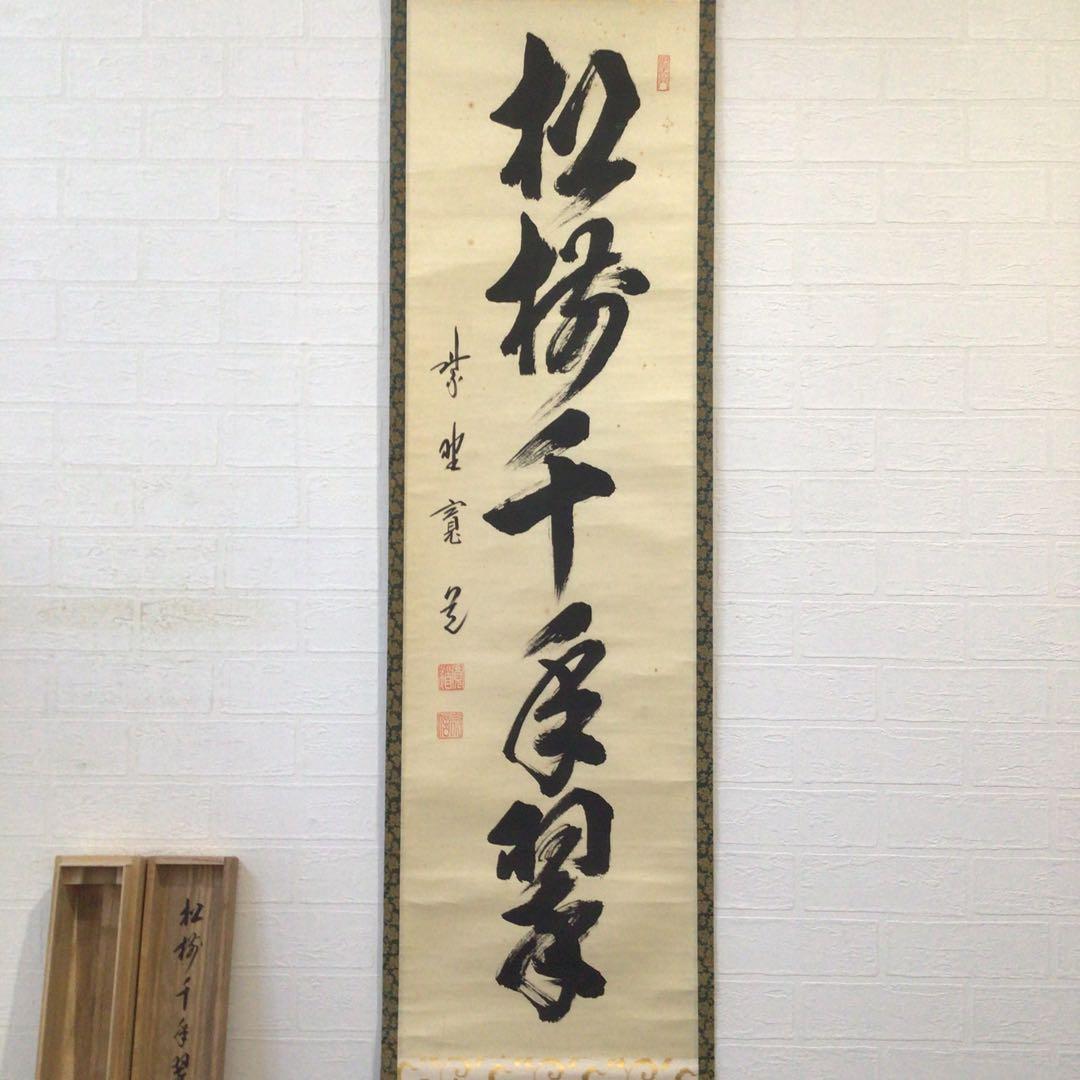 松樹千年翠
紫野寛道
松樹千年翠